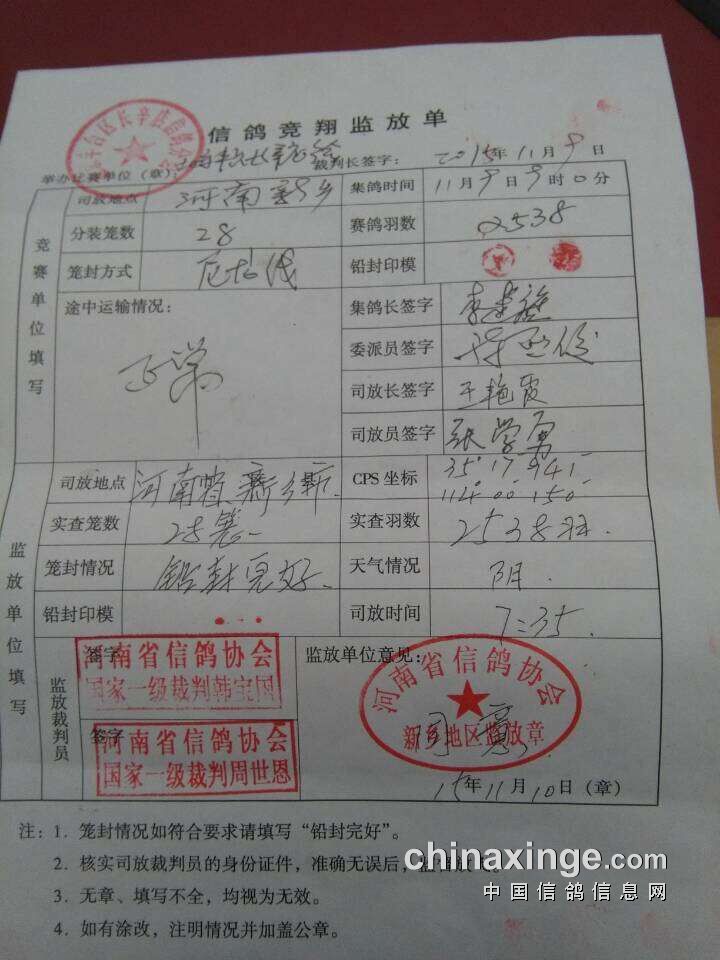 信鸽竞翔监放单
举办比赛单位(章): 裁判长签字: 2015年11月9日
竞赛单位填写
司放地点 河南新乡 集鸽时间 11月9日9时0分
分装笼数 28 赛鸽羽数 2538
笼封方式 铅封印模
途中运输情况: 正常 集鸽长签字
委派员签字
司放长签字 王艳霞
司放员签字 张学勇
监放单位填写
司放地点 河南省新乡市. CPS 坐标 35.17.941 114.00.150
实查笼数 28 实查羽数 2538羽.
笼封情况 铅封完好. 天气情况 阴.
铅封印模 司放时间 7:35.
监放裁判员
签字
河南省信鸽协会
国家一级裁判韩宝国
签字
河南省信鸽协会
国家一级裁判周世恩
监放单位意见:
河南省信鸽协会
新乡地区监放章
同意
15年11月10日(章)
注:1. 笼封情况如符合要求请填写“铅封完好”。
2. 核实司放裁判员的身份证件,准确无误后,
3. 无章、填写不全,均视为无效。
4. 如有涂改,注明情况并加盖公章。
chinaxinge.com
中国信鸽信息网